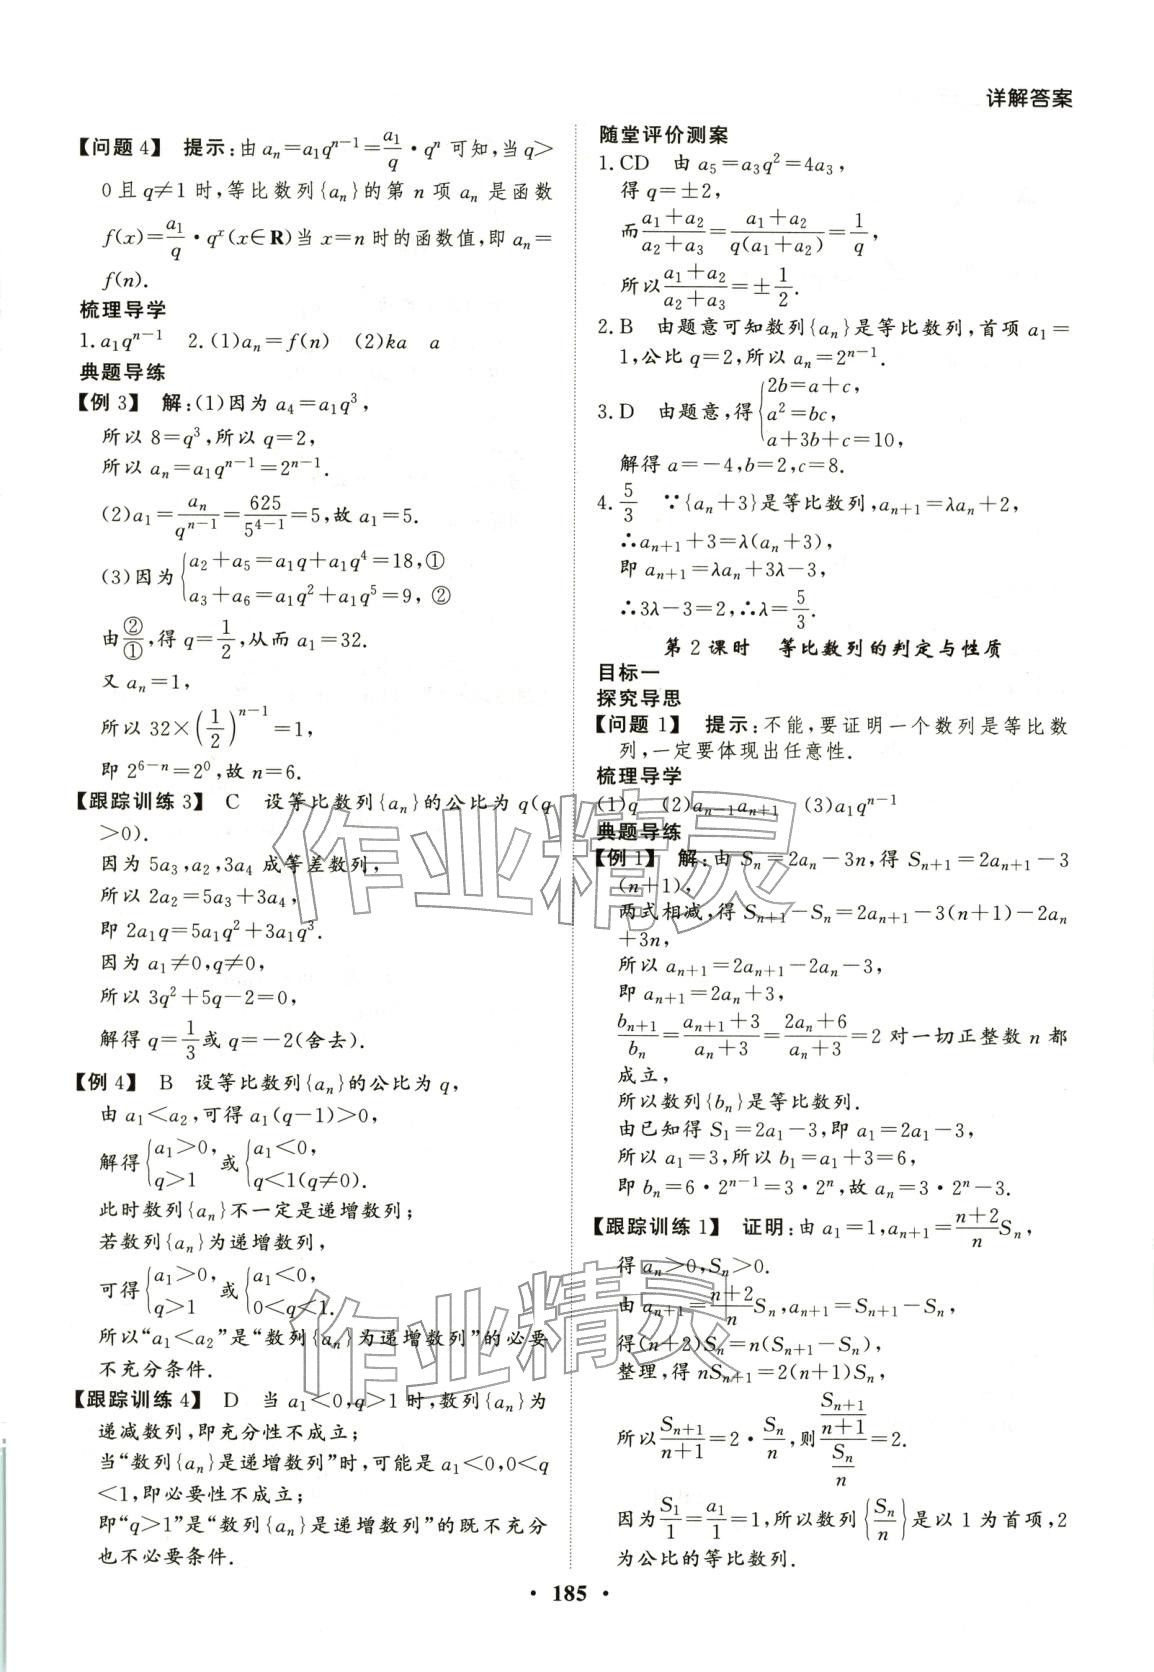 详解答案
【问题 4】 提示:由 aₙ=a₁qⁿ⁻¹=a₁/q·qⁿ 可知,当 q>
0 且 q≠1 时,等比数列{aₙ}的第 n 项 aₙ 是函数
f(x)=a₁/q·qˣ(x∈R)当 x=n 时的函数值,即 aₙ=
f(n).
梳理导学
1.a₁qⁿ⁻¹ 2.(1)aₙ=f(n) (2)ka a
典题导练
【例 3】 解:(1)因为 a₄=a₁q³,
所以 8=q³,所以 q=2,
所以 aₙ=a₁qⁿ⁻¹=2ⁿ⁻¹.
(2)a₁=aₙ/qⁿ⁻¹=625/5⁴⁻¹=5,故 a₁=5.
(3)因为{a₂+a₅=a₁q+a₁q⁴=18,①
a₃+a₆=a₁q²+a₁q⁵=9, ②
由②/①,得 q=1/2,从而 a₁=32.
又 aₙ=1,
所以 32×(1/2)ⁿ⁻¹=1,
即 2⁶⁻ⁿ=2⁰,故 n=6.
【跟踪训练 3】 C 设等比数列{aₙ}的公比为 q(q
>0).
因为 5a₃,a₂,3a₄ 成等差数列,
所以 2a₂=5a₃+3a₄,
即 2a₁q=5a₁q²+3a₁q³.
因为 a₁≠0,q≠0,
所以 3q²+5q-2=0,
解得 q=1/3或 q=-2(舍去).
【例 4】 B 设等比数列{aₙ}的公比为 q,
由 a₁<a₂,可得 a₁(q-1)>0,
解得{a₁>0, q>1 或{a₁<0, q<1(q≠0).
此时数列{aₙ}不一定是递增数列;
若数列{aₙ}为递增数列,
可得{a₁>0, q>1 或{a₁<0, 0<q<1.
所以“a₁<a₂”是“数列{aₙ}为递增数列”的必要
不充分条件.
【跟踪训练 4】 D 当 a₁<0,q>1 时,数列{aₙ}为
递减数列,即充分性不成立;
当“数列{aₙ}是递增数列”时,可能是 a₁<0,0<q
<1,即必要性不成立;
即“q>1”是“数列{aₙ}是递增数列”的既不充分
也不必要条件.
随堂评价测案
1.CD 由 a₅=a₃q²=4a₃,
得 q=±2,
而(a₁+a₂)/(a₂+a₃)=(a₁+a₂)/(q(a₁+a₂))=1/q,
所以(a₁+a₂)/(a₂+a₃)=±1/2.
2.B 由题意可知数列{aₙ}是等比数列,首项 a₁=
1,公比 q=2,所以 aₙ=2ⁿ⁻¹.
3.D 由题意,得{2b=a+c,
a²=bc,
a+3b+c=10,
解得 a=-4,b=2,c=8.
4.5/3 ∵{aₙ+3}是等比数列,aₙ₊₁=λaₙ+2,
∴aₙ₊₁+3=λ(aₙ+3),
即 aₙ₊₁=λaₙ+3λ-3,
∴3λ-3=2,∴λ=5/3.
第 2 课时 等比数列的判定与性质
目标一
探究导思
【问题 1】 提示:不能,要证明一个数列是等比数
列,一定要体现出任意性.
梳理导学
(1)q (2)aₙ₋₁aₙ₊₁ (3)a₁qⁿ⁻¹
典题导练
【例 1】 解:由 Sₙ=2aₙ-3n,得 Sₙ₊₁=2aₙ₊₁-3
(n+1),
两式相减,得 Sₙ₊₁-Sₙ=2aₙ₊₁-3(n+1)-2aₙ
+3n,
所以 aₙ₊₁=2aₙ₊₁-2aₙ-3,
即 aₙ₊₁=2aₙ+3,
bₙ₊₁/bₙ=(aₙ₊₁+3)/(aₙ+3)=(2aₙ+6)/(aₙ+3)=2 对一切正整数 n 都
成立,
所以数列{bₙ}是等比数列.
由已知得 S₁=2a₁-3,即 a₁=2a₁-3,
所以 a₁=3,所以 b₁=a₁+3=6,
即 bₙ=6·2ⁿ⁻¹=3·2ⁿ,故 aₙ=3·2ⁿ-3.
【跟踪训练 1】 证明:由 a₁=1,aₙ₊₁=(n+2)/n Sₙ,
得 aₙ>0,Sₙ>0.
由 aₙ₊₁=(n+2)/n Sₙ,aₙ₊₁=Sₙ₊₁-Sₙ,
得(n+2)Sₙ=n(Sₙ₊₁-Sₙ),
整理,得 nSₙ₊₁=2(n+1)Sₙ,
所以Sₙ₊₁/(n+1)=2·Sₙ/n,则(Sₙ₊₁/(n+1))/(Sₙ/n)=2.
因为S₁/1=a₁/1=1,所以数列{Sₙ/n}是以 1 为首项,2
为公比的等比数列.
· 185 ·
作业精灵
作业精灵